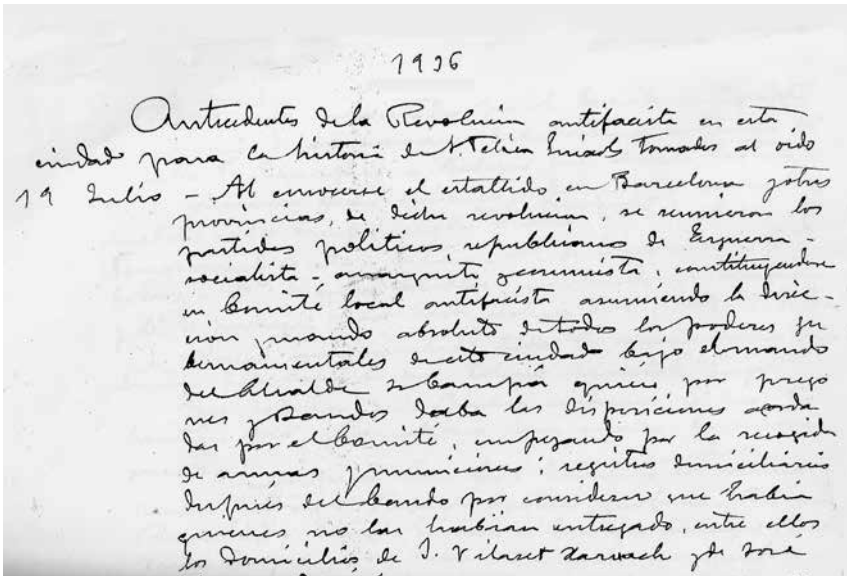 1936
Antecedentes de la Revolucion antifacista en esta
ciudad para la historia de tomados al oido
19 Julio - Al conocerse el estallido en Barcelona y otras
provincias, de dicha revolucion, se reunieron los
partidos politicos republicanos de Esquerra -
socialista - anarquista y comunista, constituyendose
en Comité local antifacista asumiendo la direc-
cion y mando absoluto de todos los poderes gu
bernamentales de esta ciudad bajo el mando
del Alcalde Sr Campá quien por prego
nes y bandos daba las disposiciones acorda
das por el Comité, empezando por la recogida
de armas y municiones; registros domiciliarios
después del bando por considerar que habia
quienes no las habian entregado, entre ellos
los domicilios de J. Vilaset y de José